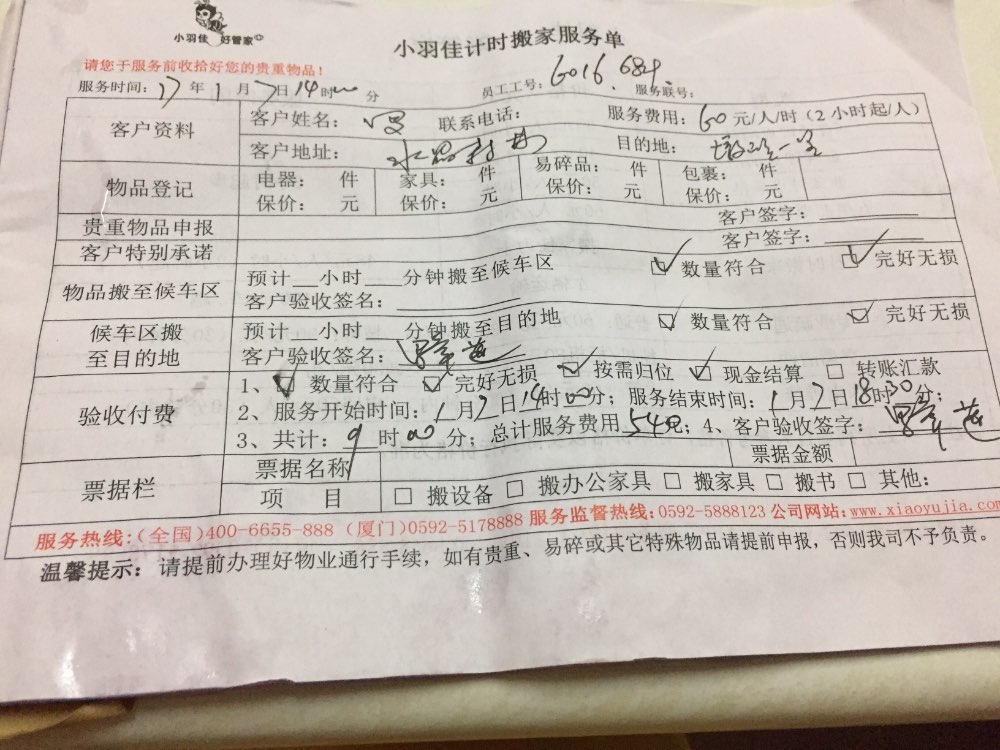 小羽佳 好管家
小羽佳计时搬家服务单
请您于服务前收拾好您的贵重物品！
服务时间：17年1月7日14时00分 员工工号：6016、684. 服务联号：
客户资料 客户姓名： 联系电话： 服务费用：60元/人/时（2小时起/人）
客户地址：水晶 目的地：
物品登记 电器： 件 家具： 件 易碎品： 件 包裹： 件
保价： 元 保价： 元 保价： 元 保价： 元
贵重物品申报 客户签字：
客户特别承诺 客户签字：
物品搬至候车区 预计__小时___分钟搬至候车区 ☑ 数量符合 ☑ 完好无损
客户验收签名：
候车区搬至目的地 预计__小时___分钟搬至目的地 ☑ 数量符合 ☑ 完好无损
客户验收签名：
验收付费 1、☑ 数量符合 ☑ 完好无损 ☑ 按需归位 ☑ 现金结算 □ 转账汇款
2、服务开始时间：1月7日14时00分；服务结束时间：1月7日18时30分；
3、共计：9时00分；总计服务费用540元；4、客户验收签字：
票据栏 票据名称 票据金额
项 目 □ 搬设备 □ 搬办公家具 □ 搬家具 □ 搬书 □ 其他：
服务热线：(全国)400-6655-888 (厦门)0592-5178888 服务监督热线：0592-5888123 公司网站：www.xiaoyujia.com
温馨提示：请提前办理好物业通行手续，如有贵重、易碎或其它特殊物品请提前申报，否则我司不予负责。